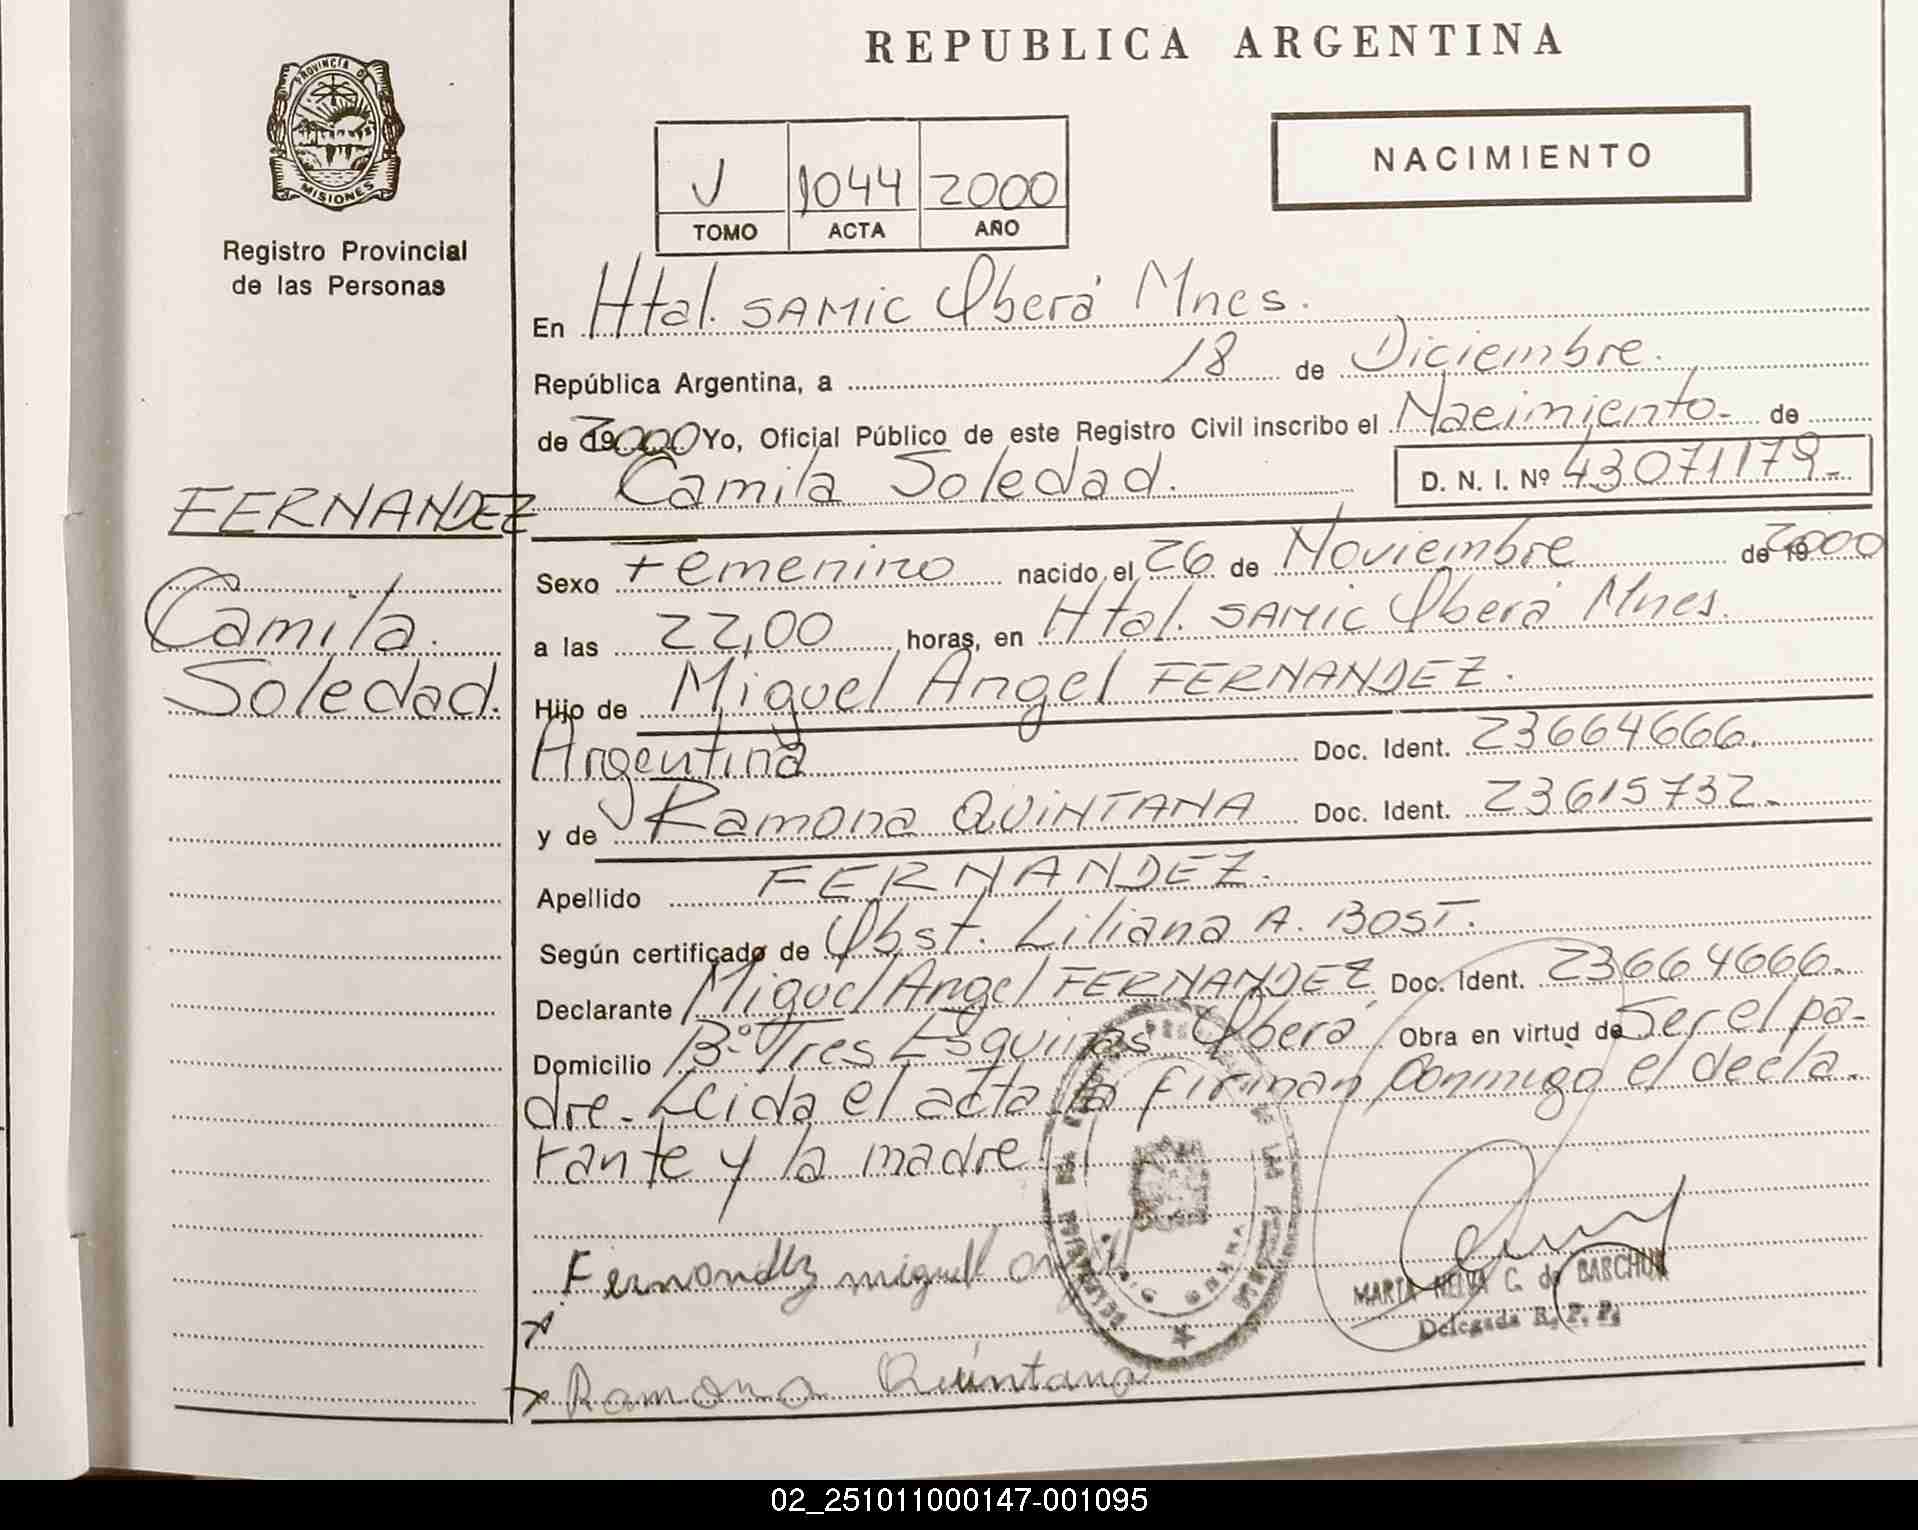 REPUBLICA ARGENTINA
PROVINCIA DE MISIONES
Registro Provincial
de las Personas
V 1044 2000
TOMO ACTA AÑO
NACIMIENTO
En Htal. SAMIC Oberá Mnes.
República Argentina, a 18 de Diciembre.
de 2000 Yo, Oficial Público de este Registro Civil inscribo el Nacimiento- de
Camila Soledad. D. N. I. Nº 43071179.-
FERNANDEZ
Camila
Soledad.
Sexo Femenino nacido el 26 de Noviembre de 2000
a las 22,00 horas, en Htal. SAMIC Oberá Mnes.
Hijo de Miguel Angel FERNANDEZ.
Argentina Doc. Ident. 23664666.
y de Ramona QUINTANA Doc. Ident. 23615732.
Apellido FERNANDEZ.
Según certificado de Obst. Liliana A. BOST.
Declarante Miguel Angel FERNANDEZ Doc. Ident. 23664666.
Domicilio Bº Tres Esquinas Oberá Obra en virtud de Ser el pa-
dre- Leida el acta la firman conmigo el decla-
rante y la madre
Fernondez miguel
MARIA NELVA C. de BABCHUK
Delegada R. P. P.
Ramona Quintana
02_251011000147-001095